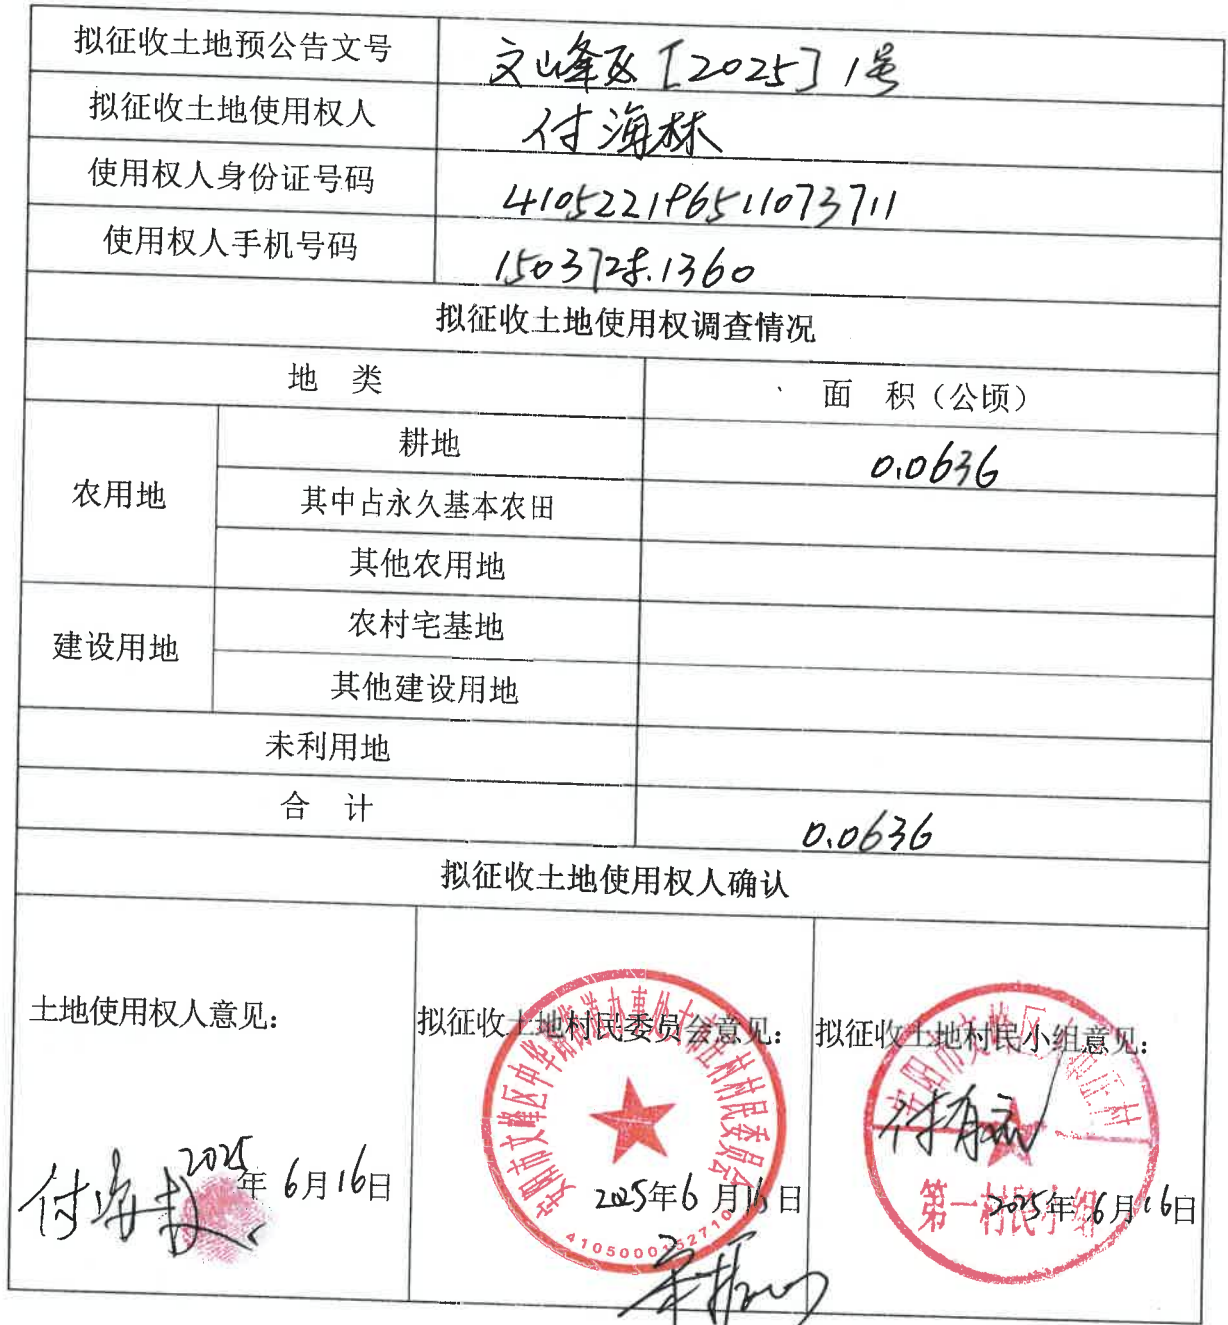 拟征收土地预公告文号 文峰政〔2025〕1号
拟征收土地使用权人 付海林
使用权人身份证号码 410522196511073711
使用权人手机号码 15037281360
拟征收土地使用权调查情况
地 类 面 积（公顷）
农用地 耕地 0.0636
其中占永久基本农田
其他农用地
建设用地 农村宅基地
其他建设用地
未利用地
合 计 0.0636
拟征收土地使用权人确认
土地使用权人意见：
2025年6月16日
拟征收土地村民委员会意见：
2025年6月16日
4105000152710
拟征收土地村民小组意见：
第一村民小组
2025年6月16日